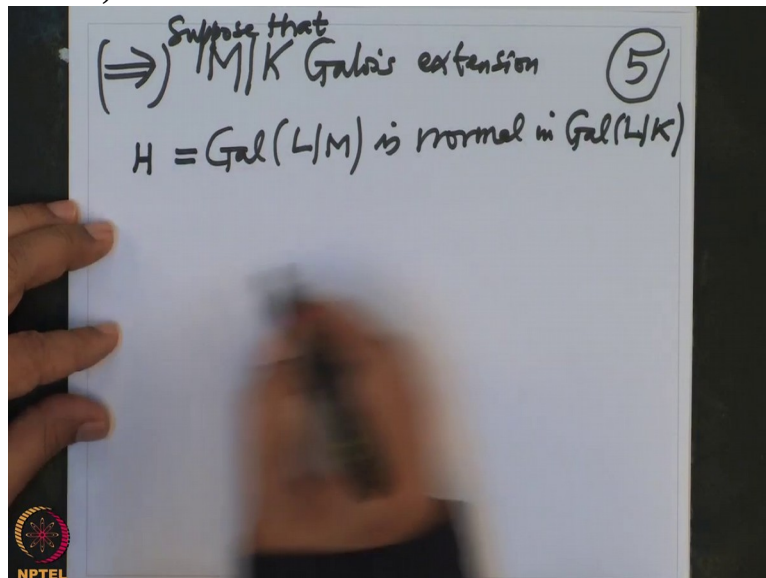 Suppose that
(⇒) M|K Galois extension (5)
H = Gal(L|M) is normal in Gal(L|K)
NPTEL